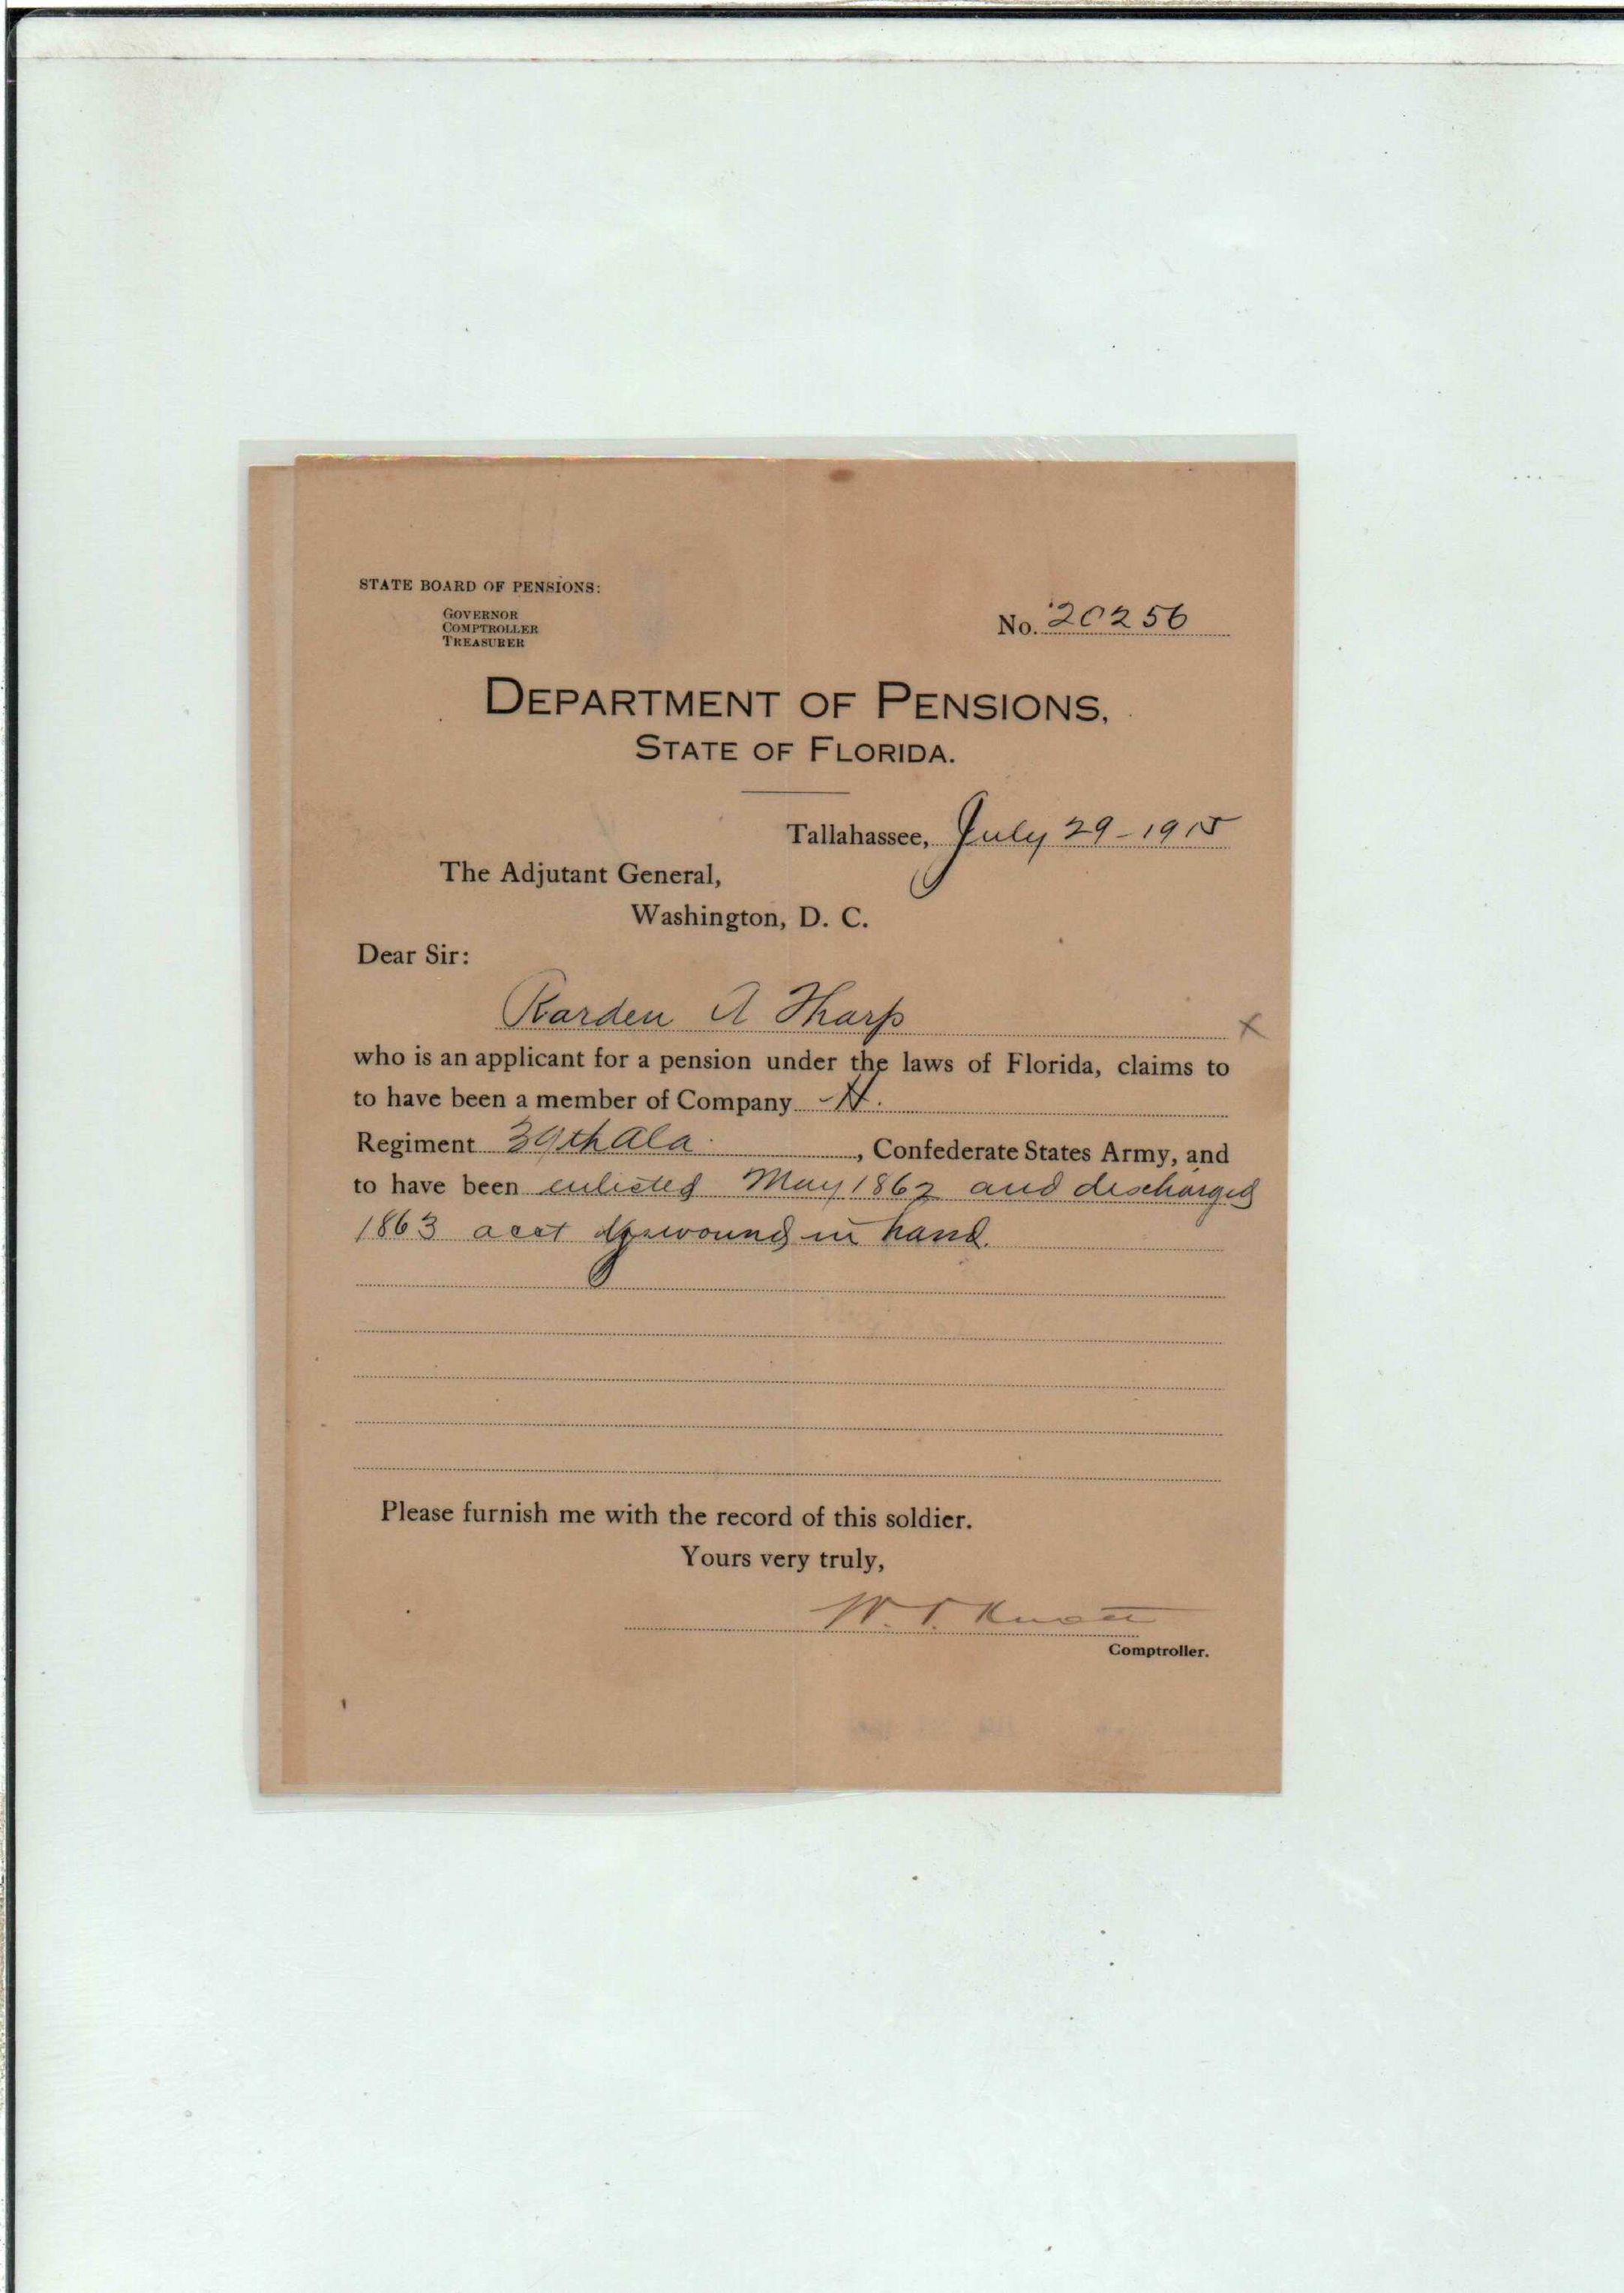 STATE BOARD OF PENSIONS:
GOVERNOR
COMPTROLLER
TREASURER
No. 20256
DEPARTMENT OF PENSIONS,
STATE OF FLORIDA.
Tallahassee, July 29-1915
The Adjutant General,
Washington, D. C.
Dear Sir:
Rarden A Tharp
x
who is an applicant for a pension under the laws of Florida, claims to
to have been a member of Company H.
Regiment 39th Ala. , Confederate States Army, and
to have been enlisted May 1862 and discharged
1863 acct of wound in hand.
Please furnish me with the record of this soldier.
Yours very truly,
W. V. Knott
Comptroller.